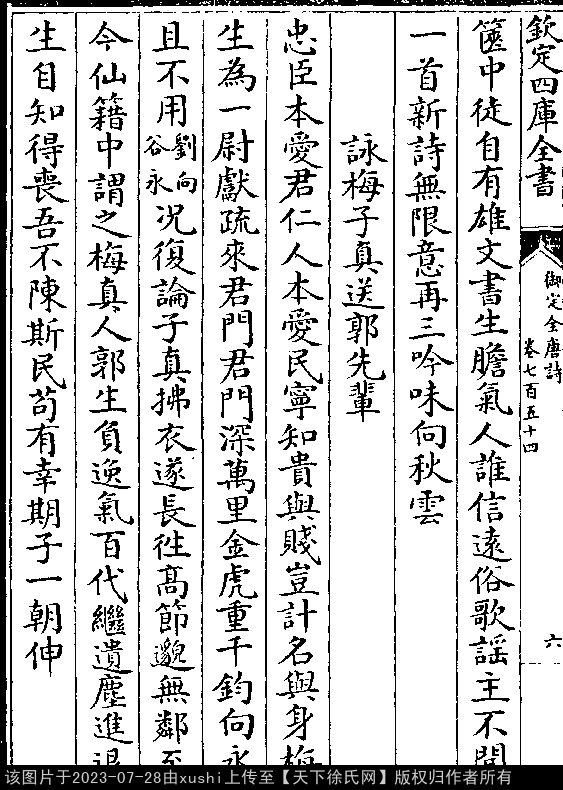 欽定四庫全書
御定全唐詩
卷七百五十四
六
篋中徒自有雄文書生膽氣人誰信遠俗歌謡主不聞
一首新詩無限意再三吟味向秋雲
詠梅子真送郭先輩
忠臣本愛君仁人本愛民寧知貴與賤豈計名與身梅
生為一尉獻疏來君門君門深萬里金虎重千鈞向永
且不用劉向谷永况復論子真拂衣遂長徃髙節邈無鄰至
今仙籍中謂之梅真人郭生負逸氣百代繼遺塵進退
生自知得喪吾不陳斯民苟有幸期子一朝伸
该图片于2023-07-28由xushi上传至【天下徐氏网】版权归作者所有